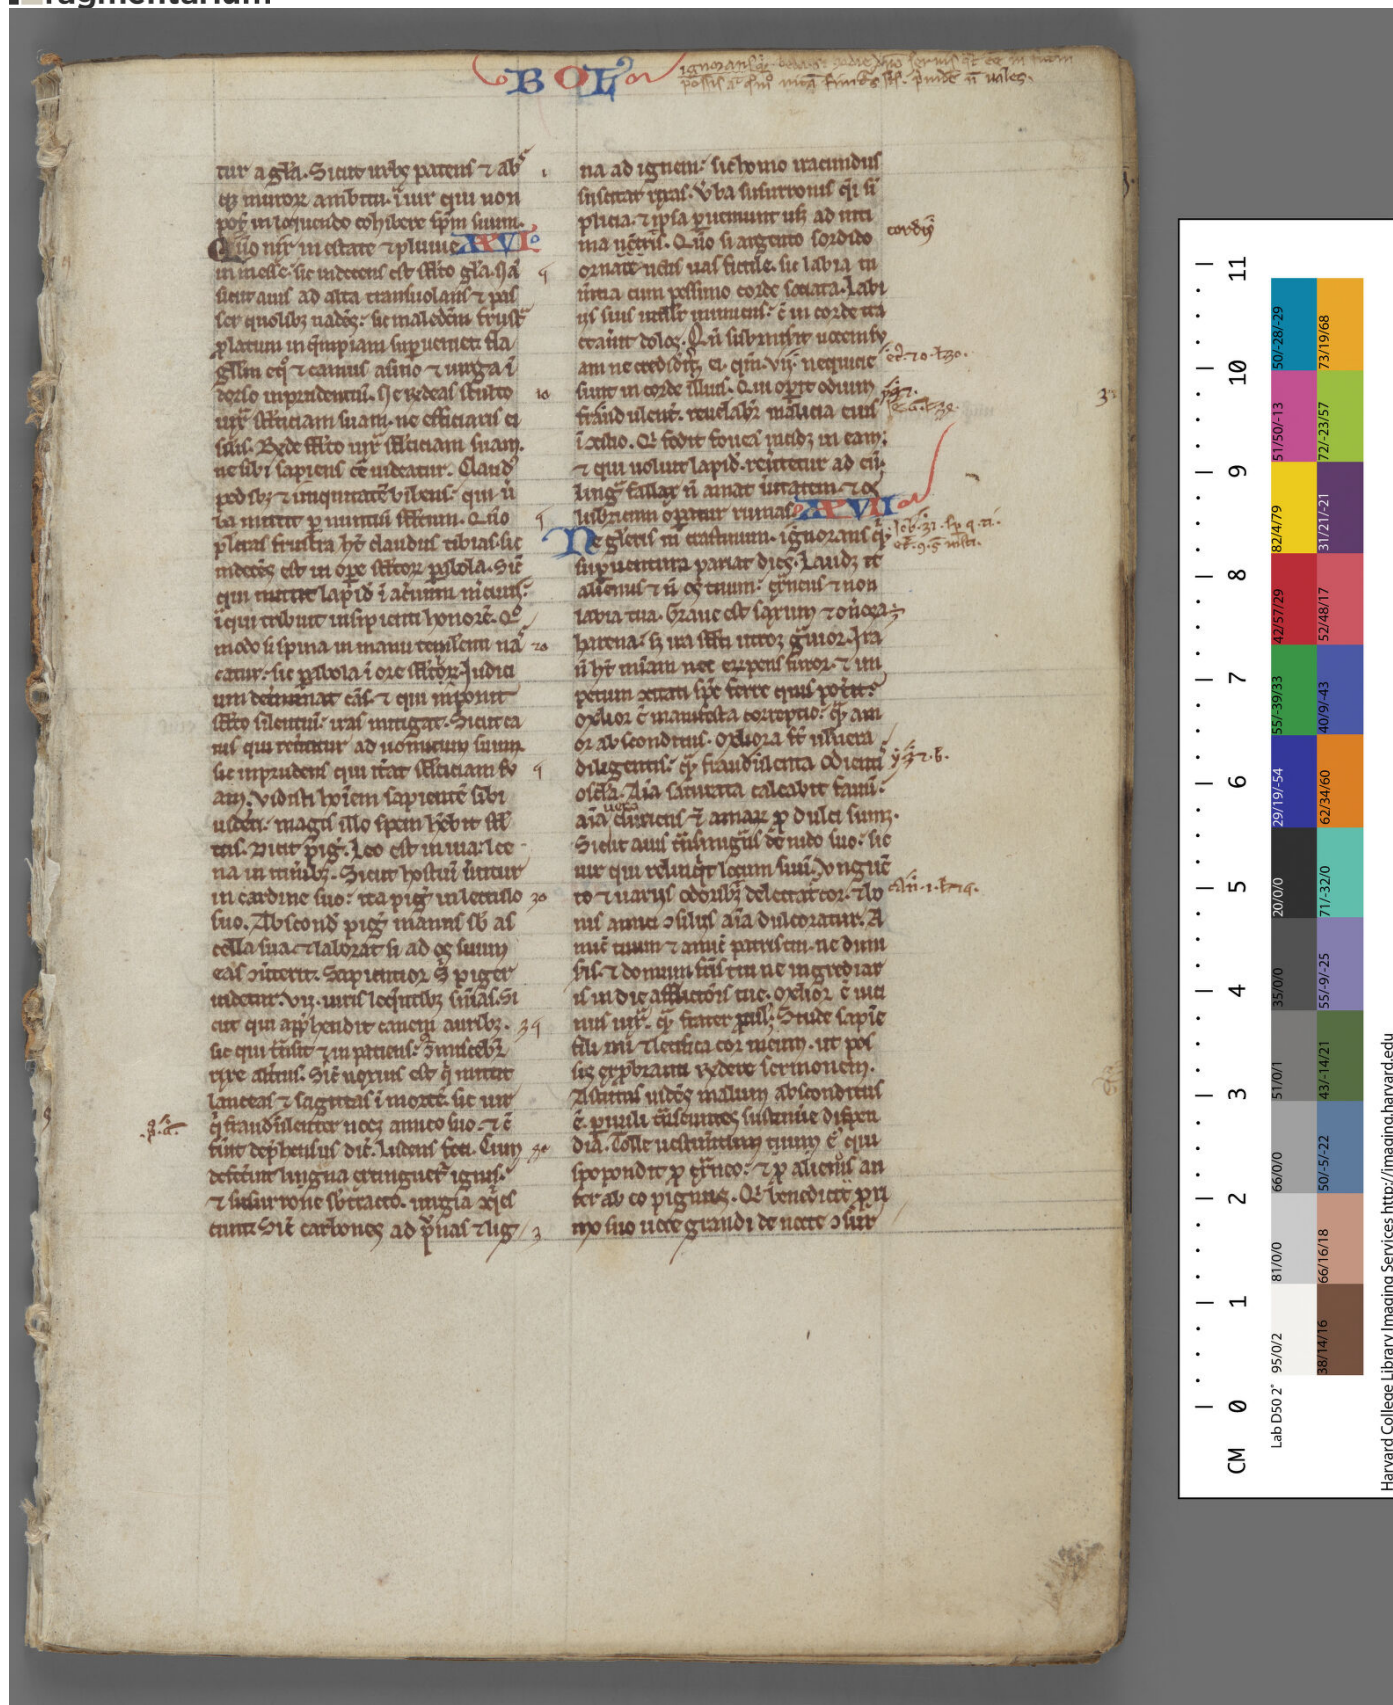 ragmentarium
BOL
tur a gła. Sicut urbs patens ⁊ abs
q̧ muroꝝ ambitu. ĩ uir qui non
pot̃ in loquendo cohibere sp̃m suum.
Quo nix in estate ⁊ pluuie XXVI
in messe. sic indecens est stł̃to gła. Nã
sicut auis ad alta transuolans ⁊ pas
ser quolibꝫ uadẽs: sic maledc̃m frustͣ
platum in q̃mpiam supueniet. fla
gellm eq̃o ⁊ camus asino ⁊ uirga ĩ
dorso inprudentiũ. Ne redeas stulto
iuxͣ stł̃ticiam suam. ne efficiaris ei
silis. Rñde stł̃to iuxͣ stł̃ticiam suam.
ne sibi sapiens eẽ uideatur. Claudꝰ
pedibꝫ ⁊ iniquitatẽ bibens. qui ũ
ba mittit p nuntiũ stł̃tum. Quo
pulcras frustra ht̃ claudus tibias. sic
indecẽs est in ore stł̃toꝝ parabola. Sic̃
qui mittit lapidẽ ĩ aceruum mercurii:
ĩ qui tribuit insipienti honorẽ. Qͦ
modo si spina in manu temulenti nas
catur: sic parabola ĩ ore stł̃toꝝ. Judici
um determinat cãs. ⁊ qui inponit
stł̃to silentiũ: iras mitigat. Sicut ca
nis qui reũtitur ad uomitum suum.
sic inprudens qui iterat stł̃ticiam su
am. Vidisti hoĩem sapientẽ sibi
uideri. magis illo spem hẽbit stł̃
tus. Dicit piger. Leo est in uia. lee
na in itinibꝫ. Sicut hostiũ ũtitur
in cardine suo: ita pigͥ in lectulo
suo. Abscondͥ pigͥ manus sb̃ as
cella sua. ⁊ laborat si ad os suum
eas ꝯũterit. Sapientior s̃ piger
uidetur. VII. uiris loq̃ntibꝫ sñias. Si
cut qui app̃hendit canem auribꝫ.
sic qui trãsit ⁊ inpatiens: ꝯmiscebrͥ
rixe altͥius. Sic̃ noxius est q̃ mittit
lanceas ⁊ sagittas ĩ mortẽ. sic uir
q̃ fraudulenter nocet amico suo. ⁊ c̃
fuit dep̃hensus dic̃. ludens feci. Cum
defecint lingna extinguetͬ ignis.
⁊ susurrone sb̃tracto. iurgia ꝯq̃es
cunt. Sic̃ carbones ad p̃nas ⁊ lig
1
5
10
5
20
5
30
35
40
3
na ad ignem: sic homo iracundus
suscitat rixas. Vba susurronis q̃i si
plicia. ⁊ ipsa pueniunt usꝫ ad inti
ma uẽtris. Quo si argento sordido
ornare uelis uas fictile. sic labia tu
mẽtia cum pessimo corde sociata. Labi
is suis intelligit inimicus: c̃ in corde tra
ctauit dolos. Qñ sub̃misit uocem su
am ne credidis ei. qm̃. VII. nequicie
sunt in corde illius. Qui opit odium
fraudulent. reuelabrͥ malicia eius
ĩ ꝯsilio. Qͥ fodit foueã incidꝫ in eam:
⁊ qui uoluit lapidͤ. reũtetur ad eũ.
Lingͣ fallax ñ amat ũitatem. ⁊ os
lubricum opatur ruinas. XXVII
Ne gl̃eris in crastinum. ignorans qͥ
supuentura pariat dies. Laudꝫ te
alienus ⁊ ñ os tuum: ex̃neus ⁊ non
labia tua. Graue est saxum ⁊ on̄osa
harena: sꝫ ira stł̃ti utroꝫ gͣuior. Ira
ñ ht̃ mĩam nec erũpens furor. ⁊ im
petum ꝯcitati sp̃c ferre quis pot̃it?
Melior ẽ manifesta correptio: qͣm am
or absconditus. Meliora st̃ ulnera
diligentis: qͣm fraudulenta odienti
oscl̃a. Aĩa saturata calcabit fauũ.
aĩa uero esuriens ⁊ amarͫ p dulci sumꝫ.
Sicut auis trãsmigrãs de nido suo: sic
uir qui relinq̃t locum suũ. Vnguẽ
to ⁊ uariis odoribꝫ delectat̃ cor. ⁊ bo
nis amici ꝯsiliis aĩa dulcoratur. A
micũ tuum ⁊ amicũ patris tui. ne dimi
sis. ⁊ domum frĩs tui ne ingrediar
is in die afflictiõis tue. Melior ẽ uici
nus iuxͣ. qͣm frater pcul. Stude sapiẽ
fili mi ⁊ letifica cor meum. ut pos
sis exp̃branti rñdere sermonem.
Astutus uidẽs malum absconditus
ẽ. paruuli trãseuntes sustinue dispen
dia. Tolle uestimtum eius qui
spopondit p ex̃neo: ⁊ p alienis au
fer ab eo pignus. Qͥ benedicit pxi
mo suo uoce grandi de nocte ꝯsur
cordis
CM 0 1 2 3 4 5 6 7 8 9 10 11
Lab D50 2°
95/0/2
81/0/0
66/0/0
51/0/1
35/0/0
20/0/0
29/19/-54
55/-39/33
42/57/29
82/4/79
51/50/-13
50/-28/-29
38/14/16
66/16/18
50/-5/-22
43/-14/21
55/-9/-25
71/-32/0
62/34/60
40/9/-43
52/48/17
31/21/-21
72/-23/57
73/19/68
Harvard College Library Imaging Services http://imaging.harvard.edu